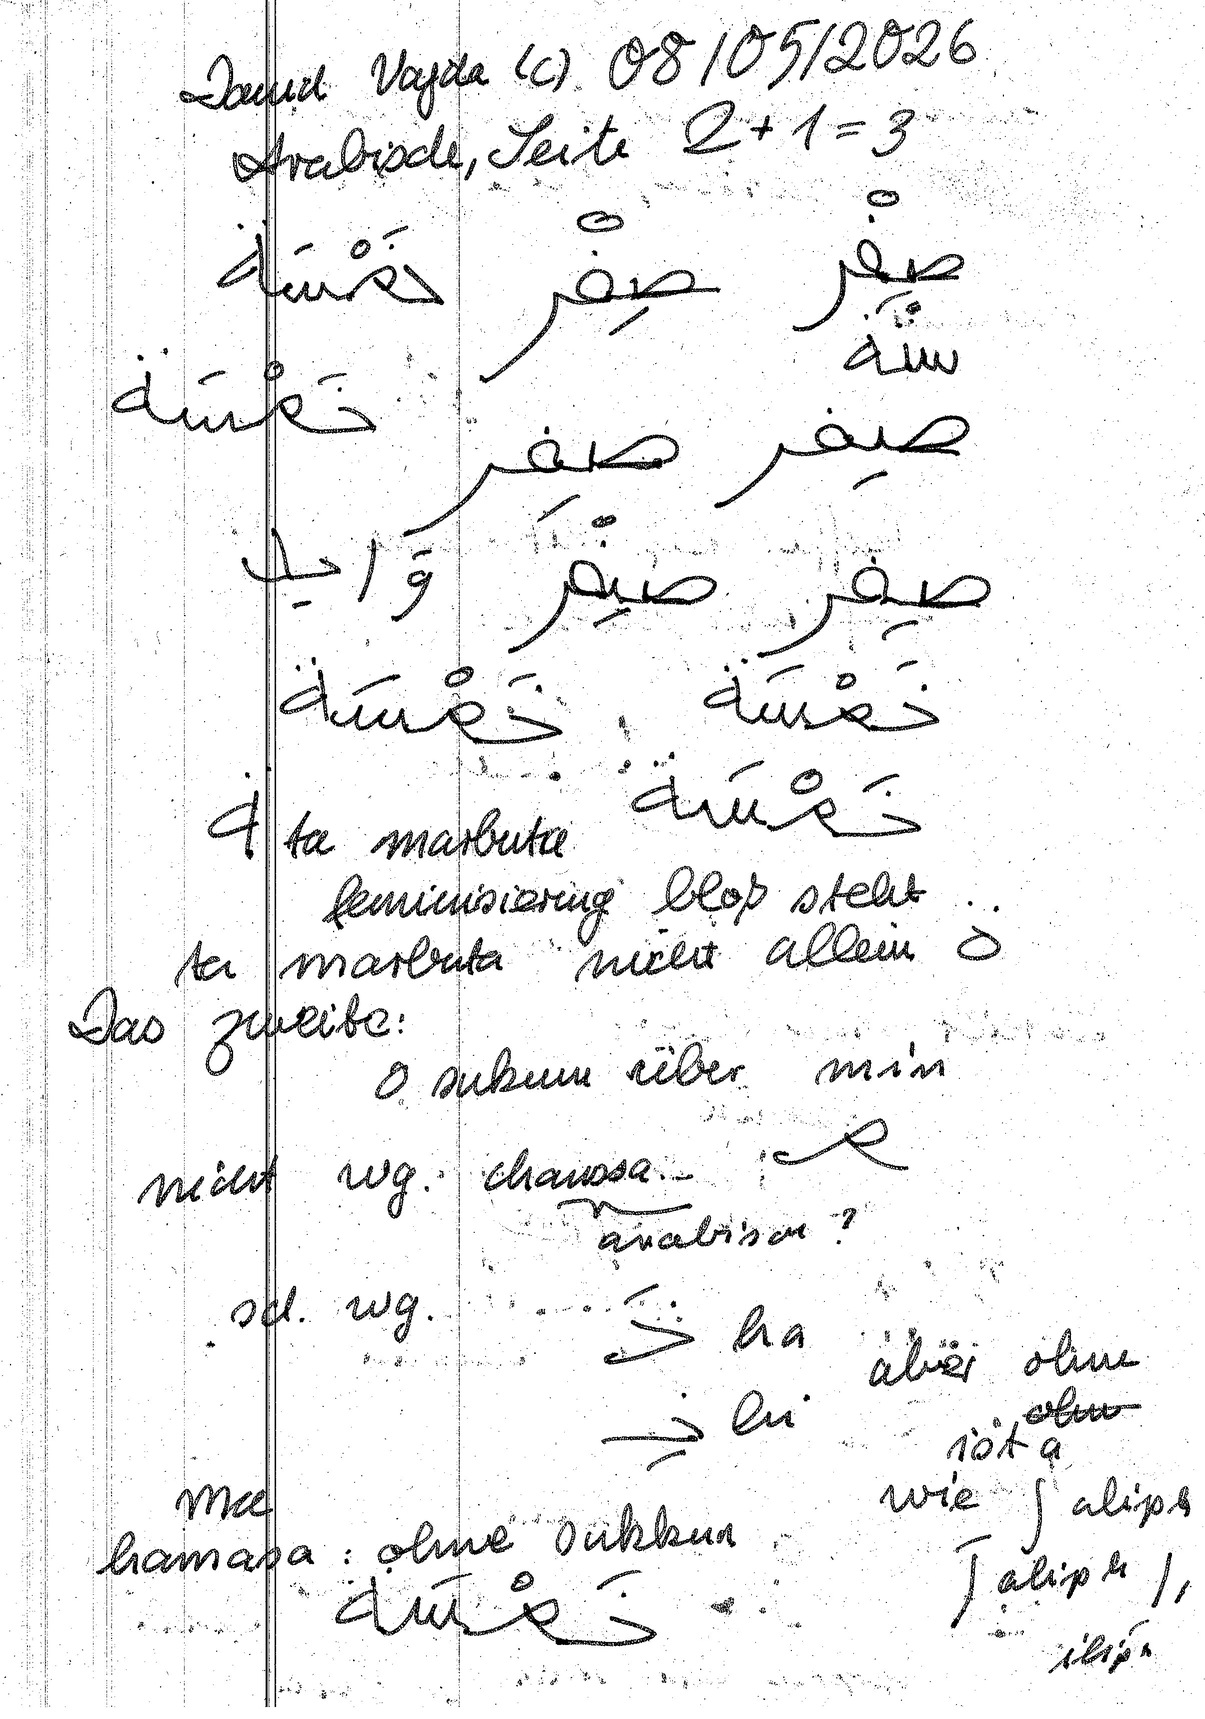 David Vajda (C) 08/05/2026
Arabische, Seite 2+1=3
صِفْر صِفْر خَمْسَة
سنة
خَمْسَة
صِفر صِفِر
صِفر صِفْر وَاحِد
خَمْسَة خَمْسَة
خَمْسَة
ة ta marbuta
feminisierung bloß steht
ta marbuta nicht allein ة
Das zweite:
o sukun über mim
nicht wg. chamsa م
arabisch?
sd. wg. خَ ha
aber ohne
خِ hi ohne
ist a
ma wie ʃ aliph
hamasa: ohne sukkun
aliph /,
خَمْسَة
iliph